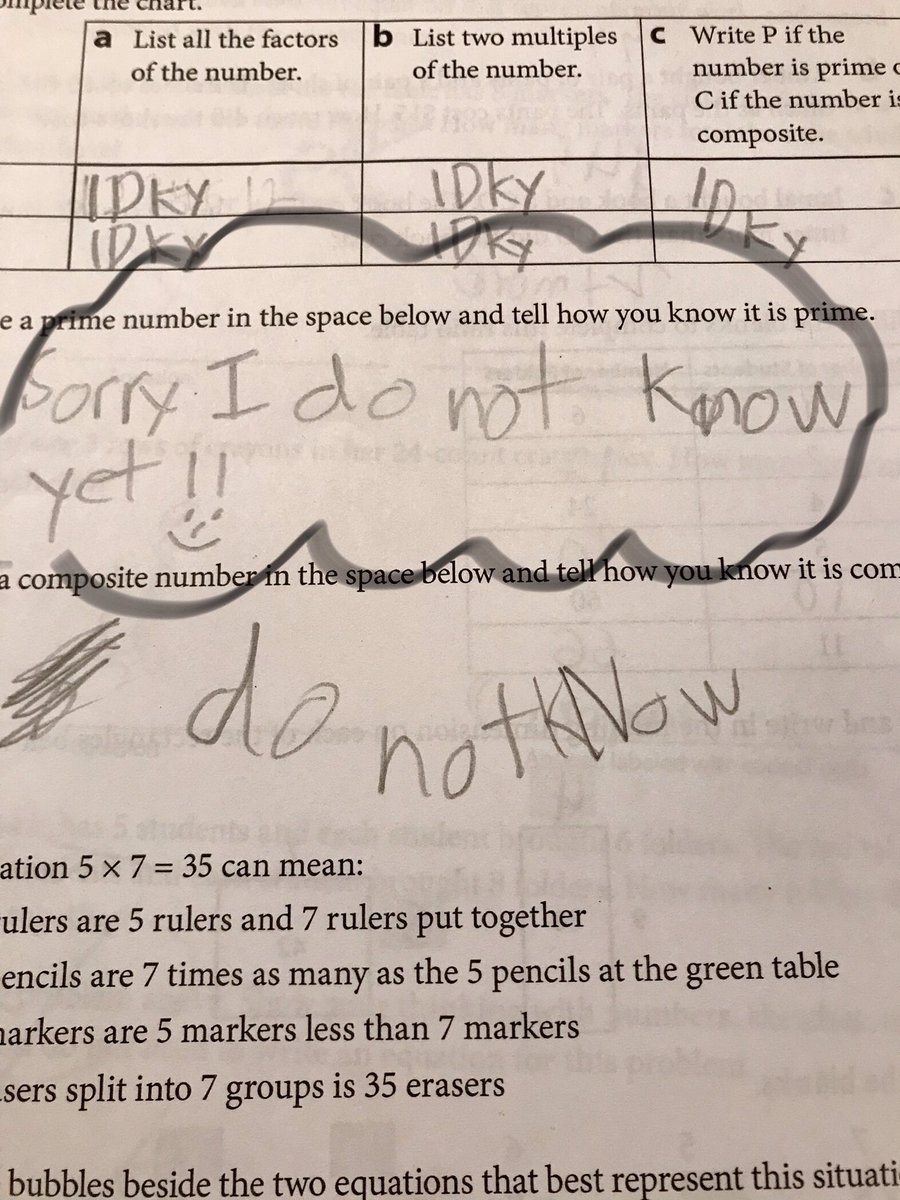 omplete the chart.
a List all the factors of the number.
b List two multiples of the number.
c Write P if the number is prime C if the number is composite.
IDKY IDKY IDKY
IDKY IDKY
e a prime number in the space below and tell how you know it is prime.
Sorry I do not know
yet !!
a composite number in the space below and tell how you know it is com
do notKNow
ation 5 × 7 = 35 can mean:
ulers are 5 rulers and 7 rulers put together
encils are 7 times as many as the 5 pencils at the green table
arkers are 5 markers less than 7 markers
sers split into 7 groups is 35 erasers
bubbles beside the two equations that best represent this situati